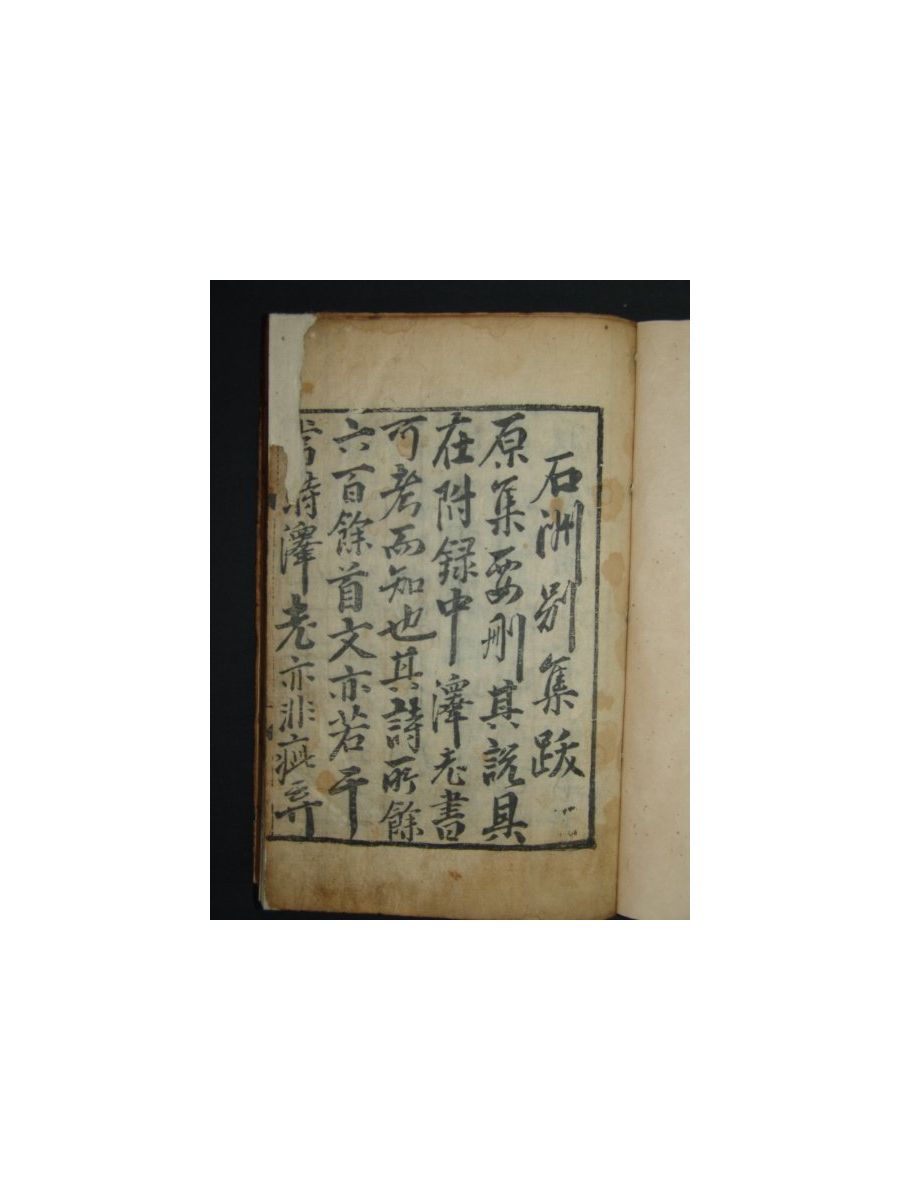 石洲別集跋
原集要刪其說具
在附録中澤老書
可考而知也其詩所餘
六百餘首文亦若干
當時澤老亦非疵弃